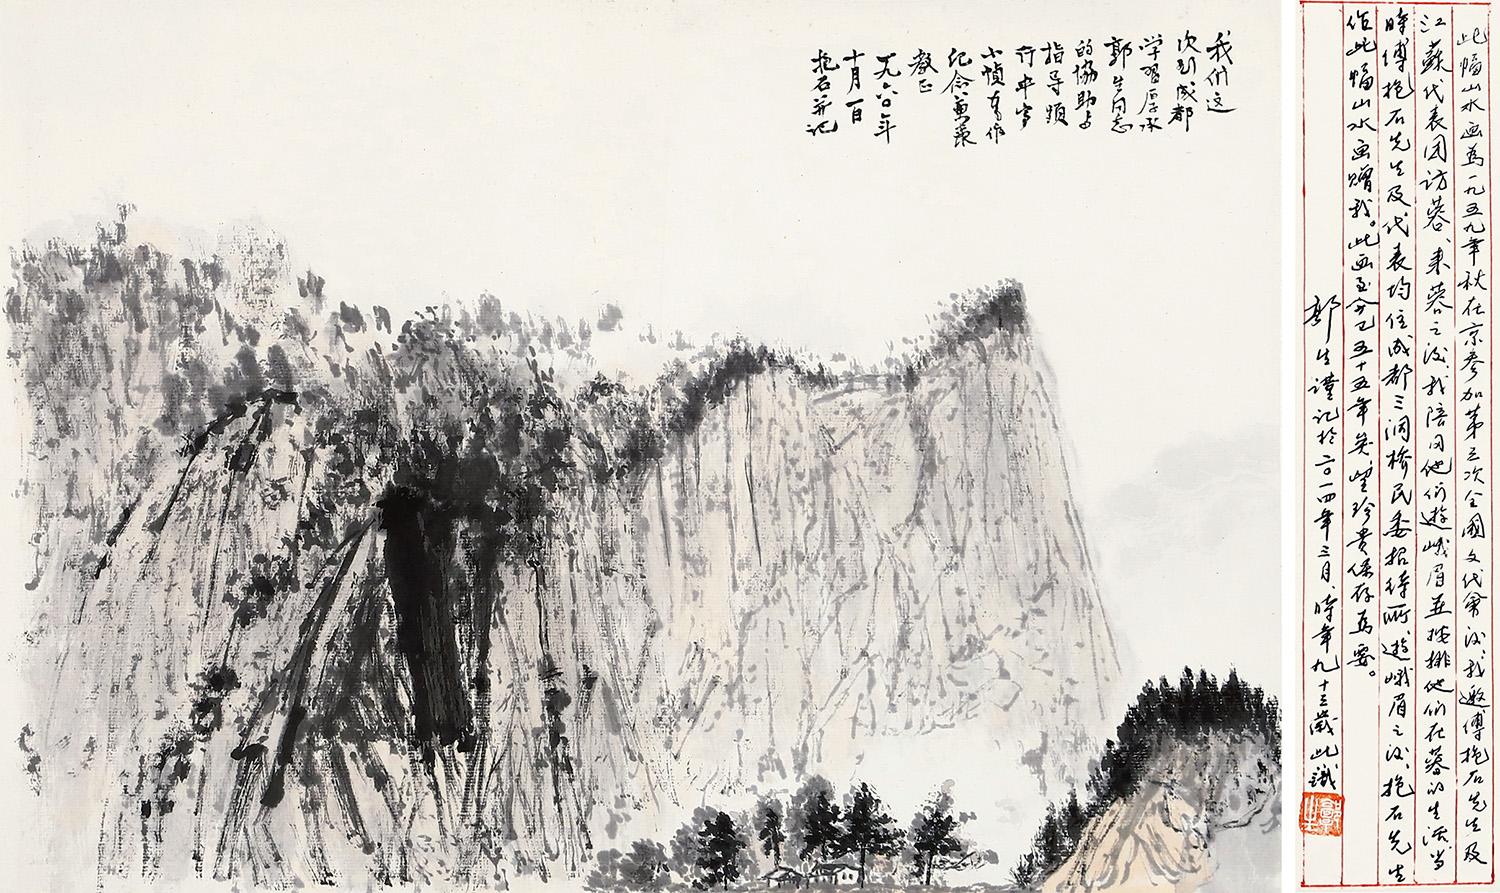 我们这
次到成都
学習厚承
郭生同志
的協助与
指导頻
行率寫
小幀畧作
纪念並求
教正
一九六〇年
十月一日
抱石并记
此幅山水画為一九五九年秋在京参加第三次全國文代會後、我邀傅抱石先生及
江蘇代表团访蓉、来蓉之後、我陪同他们遊峨眉並按排他们在蓉的生活当
時傅抱石先生及代表均住成都三洞橋民委招待所遊峨眉之後、抱石先生
作此幅山水画赠我。此画至今已五十五年矣望珍贵保存為要。
郭生謹记於二〇一四年三月、時年九十三歲此識